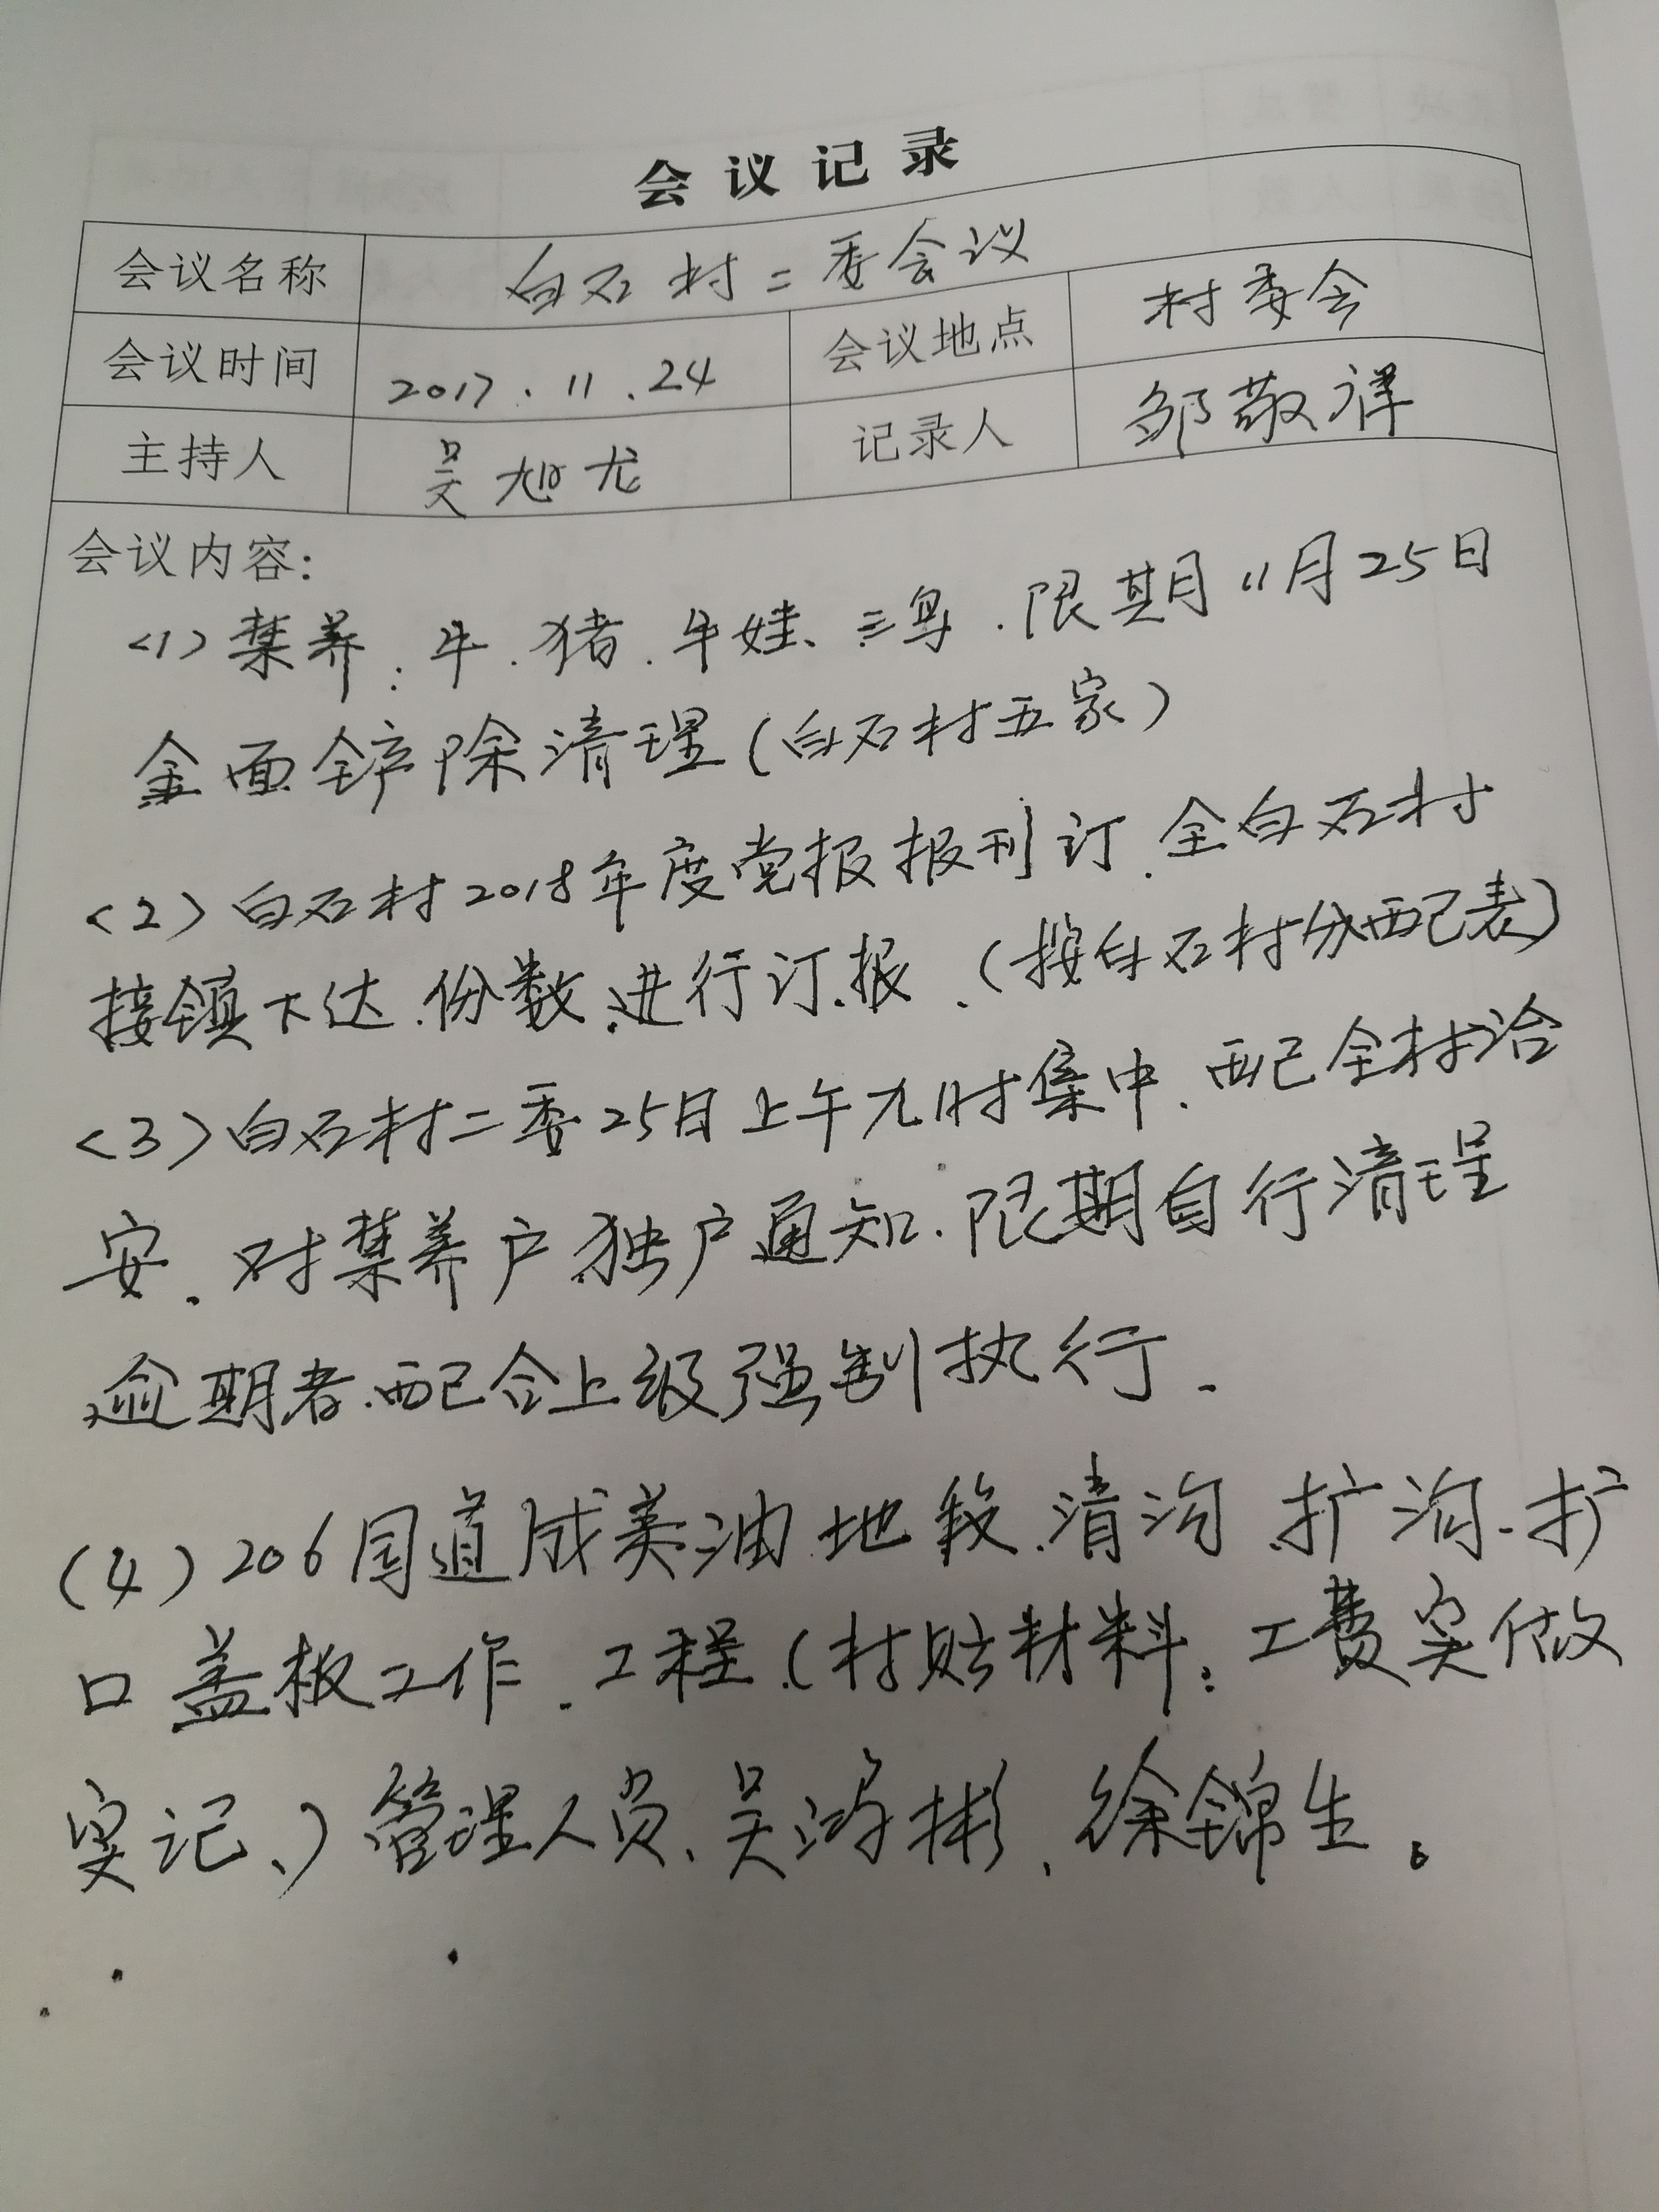 会议记录
会议名称 白石村二委会议
会议时间 2017.11.24 会议地点 村委会
主持人 吴旭龙 记录人 邹敬祥
会议内容:
<1>禁养:牛.猪.牛娃、三鸟.限期11月25日
全面铲除清理(白石村五家)
<2>白石村2018年度党报报刊订.全白石村
接镇下达.份数.进行订.报.(按白石村分配表)
<3>白石村二委25日上午九时集中.配全村治
安.对禁养户独户通知.限期自行清理
逾期者.配合上级强制执行.
(4)206国道成美油地段.清沟.扩沟.扩
口盖板工作.工程.(村贴材料:工费实做
实记、)管理人员、吴鸿彬、徐锦生。